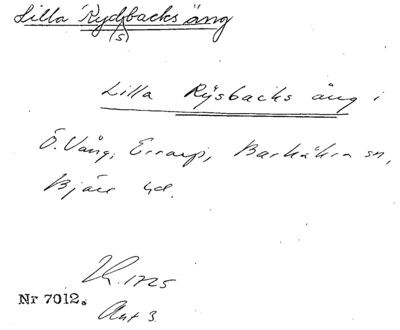 Lilla Rydsbacks äng
(s)
Lilla Rysbacks äng i
Ö. Vång, Errarp, Barkåkra sn,
Bjäre hd.
LK. 1725
Nr 7012.
Akt 3.